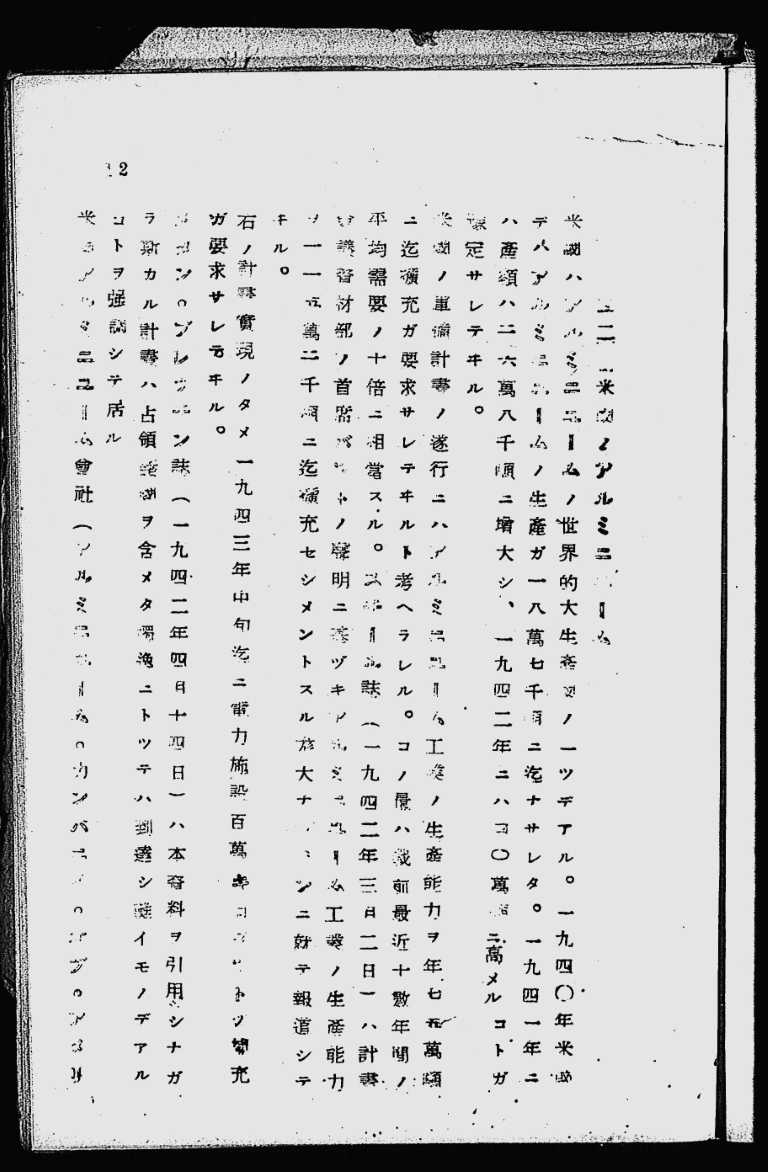 12
二、米國ノアルミニユーム
米國ハアルミニユームノ世界的大生產國ノ一ツデアル。一九四〇年米國
デハアルミニユームノ生產ガ一八萬七千噸ニ迄ナサレタ。一九四一年ニ
ハ產額ハ二六萬八千噸ニ增大シ、一九四二年ニハ四〇萬噸ニ高メルコトガ
豫定サレテヰル。
米國ノ軍備計畫ノ遂行ニハアルミニユーム工業ノ生產能力ヲ年七五萬噸
ニ迄擴充ガ要求サレテヰルト考ヘラレル。コノ量ハ戰前最近十數年間ノ
平均需要ノ十倍ニ相當スル。スチール誌(一九四二年三月二日)ハ計畫
會議資材部ノ首席 ノ聲明ニ基ヅキアルミニユーム工業ノ生產能力
ヲ一一五萬二千噸ニ迄擴充セシメントスル尨大ナ ニ就テ報道シテ
ヰル。
石ノ計畫實現ノタメ一九四三年中旬迄ニ電力施設百萬キロワットノ擴充
ガ要求サレテヰル。
ノブレツチン誌(一九四二年四月十四日)ハ本資料ヲ引用シナガ
ラ斯カル計畫ハ占領諸國ヲ含メタ獨逸ニトツテハ到達シ難イモノデアル
コトヲ强調シテ居ル
米國アルミニユーム會社(アルミニユーム。カンパニー。オブ。アメリ